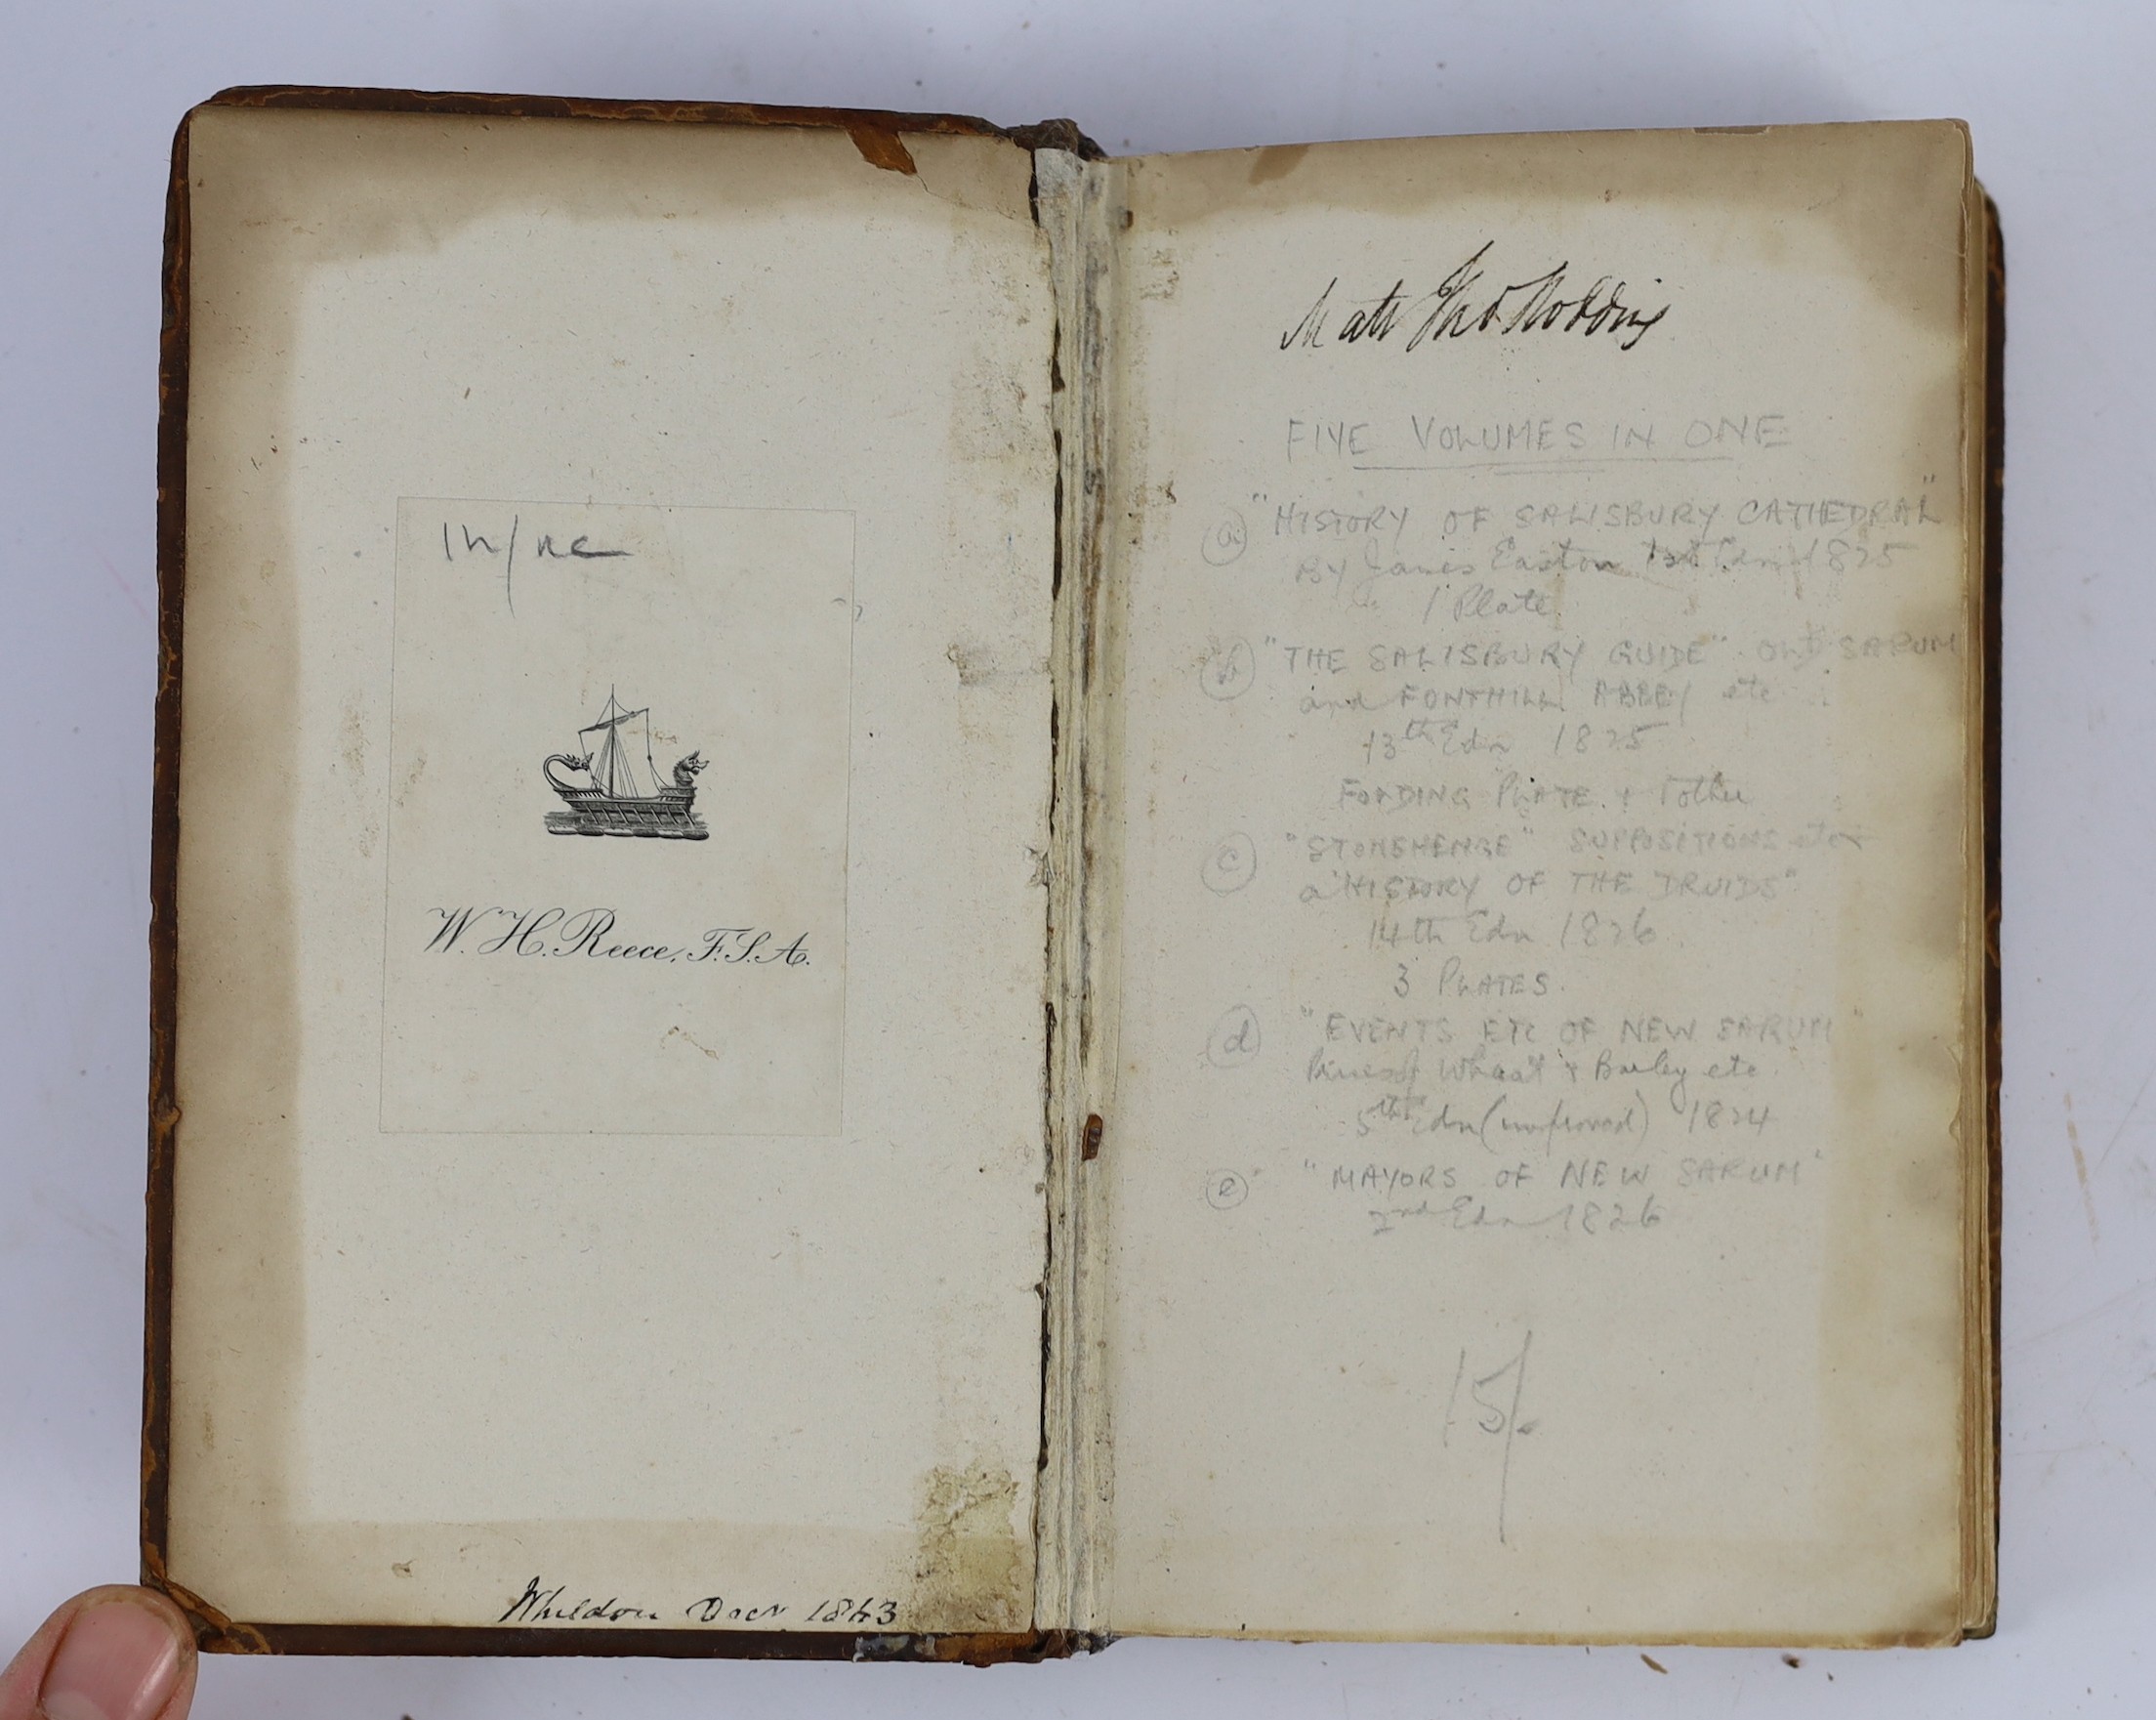 W. H. Reece, F.S.A.
1843
Matt Tho
FIVE VOLUMES IN ONE
(a) "HISTORY OF SALISBURY CATHEDRAL"
By James Easton 1st Edn 1825
1 Plate
(b) "THE SALISBURY GUIDE" OLD SARUM
and FONTHILL ABBEY etc
13th Edn 1825
FOLDING PLATE. + 1 other
(c) "STONEHENGE" SUPPOSITIONS etc
a "HISTORY OF THE DRUIDS"
14th Edn 1826
3 PLATES.
(d) "EVENTS ETC OF NEW SARUM"
Prices of Wheat & Barley etc
5th Edn (improved) 1824
(e) "MAYORS OF NEW SARUM"
2nd Edn 1826
15/-